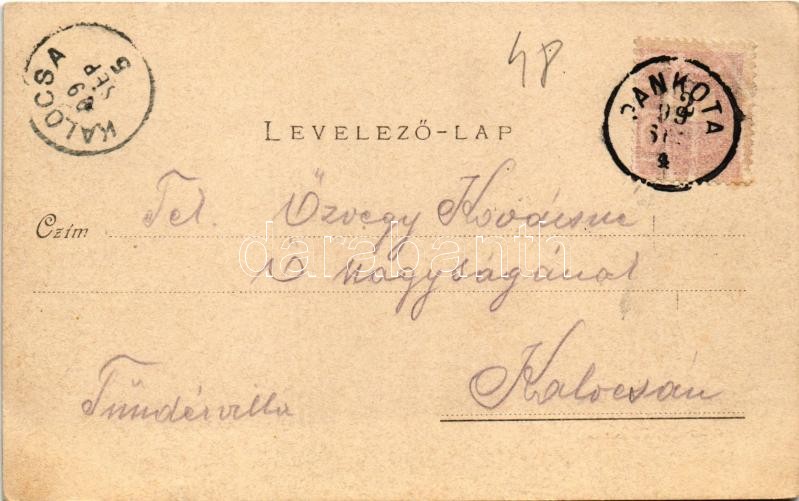 48
KALOCSA
99 SEP 5
PANKOTA
99 SEP 4
LEVELEZŐ-LAP
Czím
Tek. Özvegy Kovácsné
Ő Nagyságának
darabanth
Tündérvilla
Kalocsán